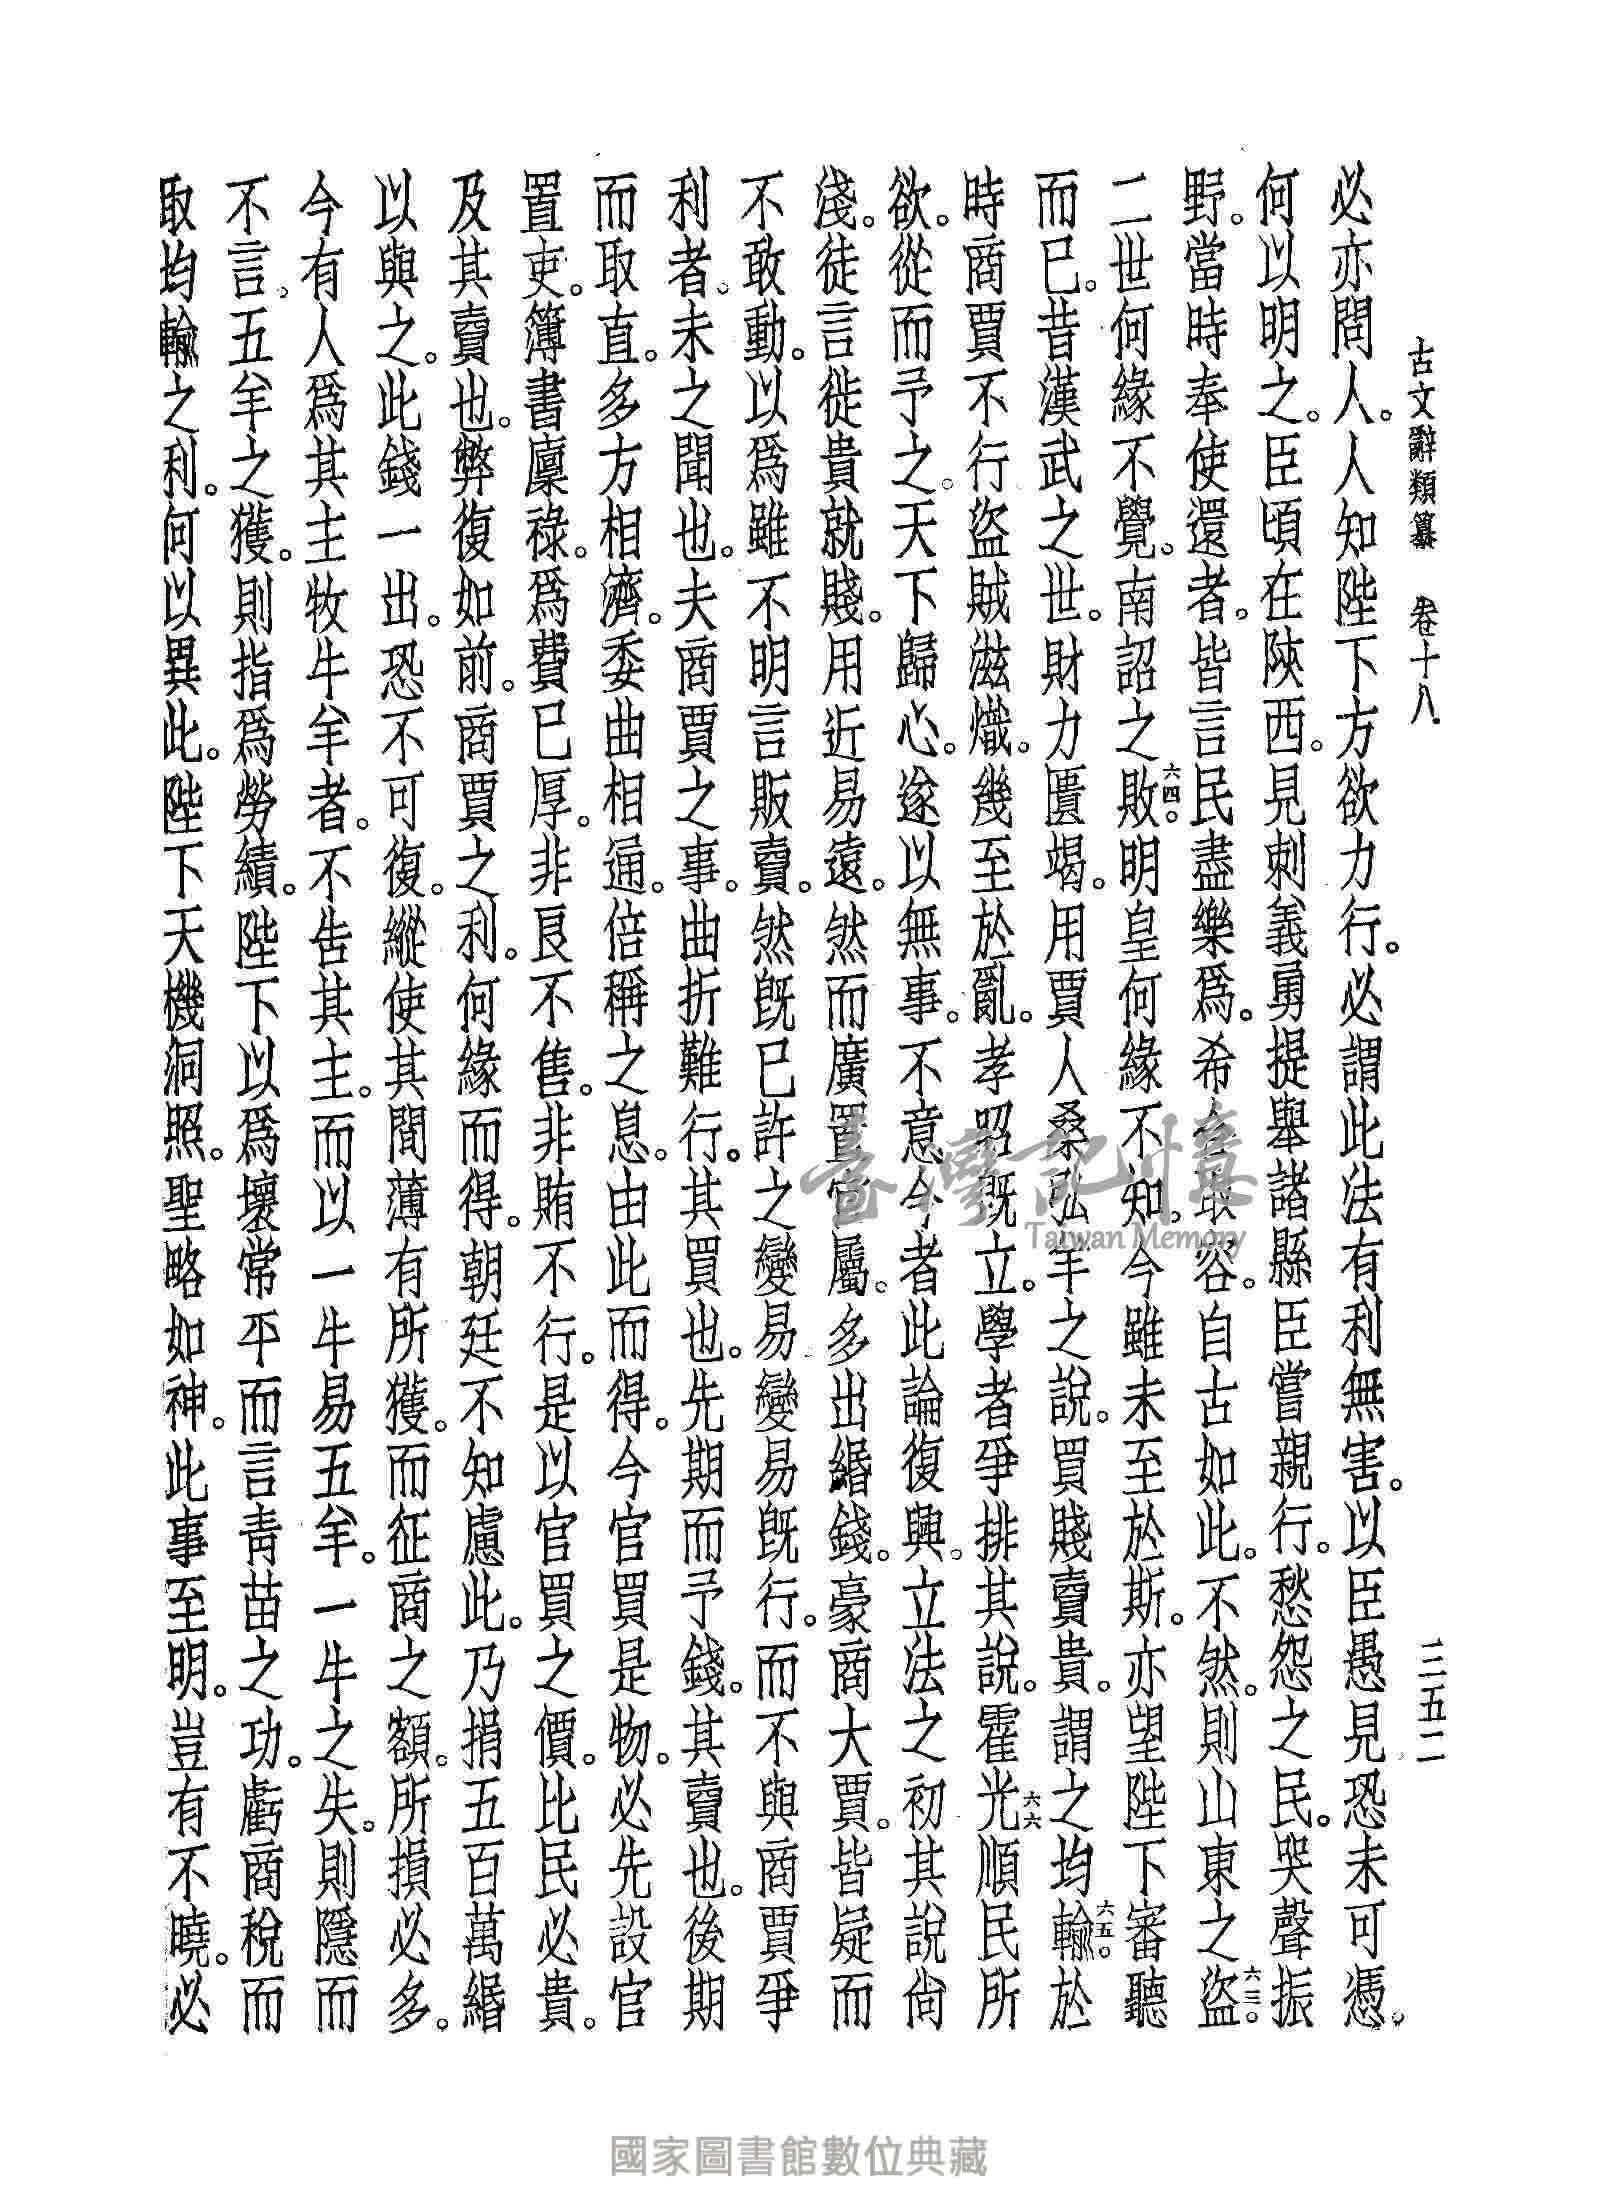 古文辭類纂　卷十八　　三五二
必亦問人。人知陛下方欲力行。必謂此法有利無害。以臣愚見恐未可憑。
何以明之。臣頃在陝西。見刺義勇提舉諸縣臣嘗親行。愁怨之民。哭聲振
野。當時奉使還者。皆言民盡樂爲。希合取容。自古如此。不然。則山東之盜六三。
二世何緣不覺。南詔之敗六四。明皇何緣不知。今雖未至於斯。亦望陛下審聽
而已。昔漢武之世。財力匱竭。用賈人桑弘羊之說。買賤賣貴。謂之均輸六五。於
時商賈不行盜賊滋熾。幾至於亂。孝昭既立。學者爭排其說。霍光六六順民所
欲。從而予之。天下歸心。遂以無事。不意今者此論復興。立法之初其說尚
淺。徒言徙貴就賤。用近易遠。然而廣置官屬。多出緡錢。豪商大賈。皆疑而
不敢動。以爲雖不明言販賣。然既已許之變易。變易既行。而不與商賈爭
利者。未之聞也。夫商賈之事。曲折難行。其買也。先期而予錢。其賣也。後期
而取直。多方相濟。委曲相通。倍稱之息。由此而得。今官買是物。必先設官
置吏。簿書廩祿。爲費已厚。非良不售。非賄不行。是以官買之價。比民必貴。
及其賣也。弊復如前。商賈之利。何緣而得。朝廷不知慮此。乃捐五百萬緡
以與之。此錢一出。恐不可復。縱使其間薄有所獲。而征商之額。所損必多。
今有人爲其主牧牛羊者。不告其主。而以一牛易五羊。一牛之失。則隱而
不言。五羊之獲。則指爲勞績。陛下以爲壞常平而言靑苗之功。虧商稅而
取均輸之利。何以異此。陛下天機洞照。聖略如神。此事至明。豈有不曉。必
臺灣記憶
Taiwan Memory
國家圖書館數位典藏